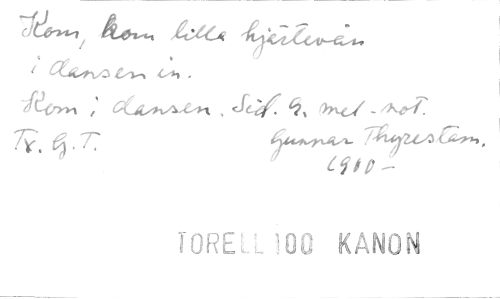 Kom, kom lilla hjärtevän
i dansen in.
Kom i dansen. Sid. 9. mel-not.
Tx. G. T. Gunnar Thyrestam.
1900-
TORELL 100 KANON